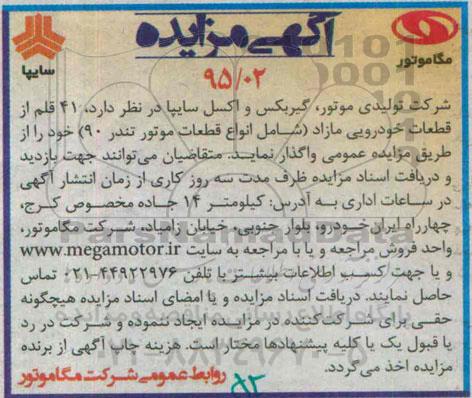 آگهی مزایده
مگاموتور
سایپا
۹۵/۰۲
شرکت تولیدی موتور، گیربکس و اکسل سایپا در نظر دارد، ۴۱ قلم از
قطعات خودرویی مازاد (شامل انواع قطعات موتور تندر ۹۰) خود را از
طریق مزایده عمومی واگذار نماید. متقاضیان می‌توانند جهت بازدید
و دریافت اسناد مزایده ظرف مدت سه روز کاری از زمان انتشار آگهی
در ساعات اداری به آدرس: کیلومتر ۱۴ جاده مخصوص کرج،
چهارراه ایران خودرو، بلوار جنوبی، خیابان زامیاد، شرکت مگاموتور،
واحد فروش مراجعه و یا با مراجعه به سایت www.megamotor.ir
و یا جهت کسب اطلاعات بیشتر با تلفن ۴۴۹۲۲۹۷۶-۰۲۱ تماس
حاصل نمایند. دریافت اسناد مزایده و یا امضای اسناد مزایده هیچگونه
حقی برای شرکت‌کننده در مزایده ایجاد ننموده و شرکت در رد
یا قبول یک یا کلیه پیشنهادها مختار است. هزینه چاپ آگهی از برنده
مزایده اخذ می‌گردد.
روابط عمومی شرکت مگاموتور